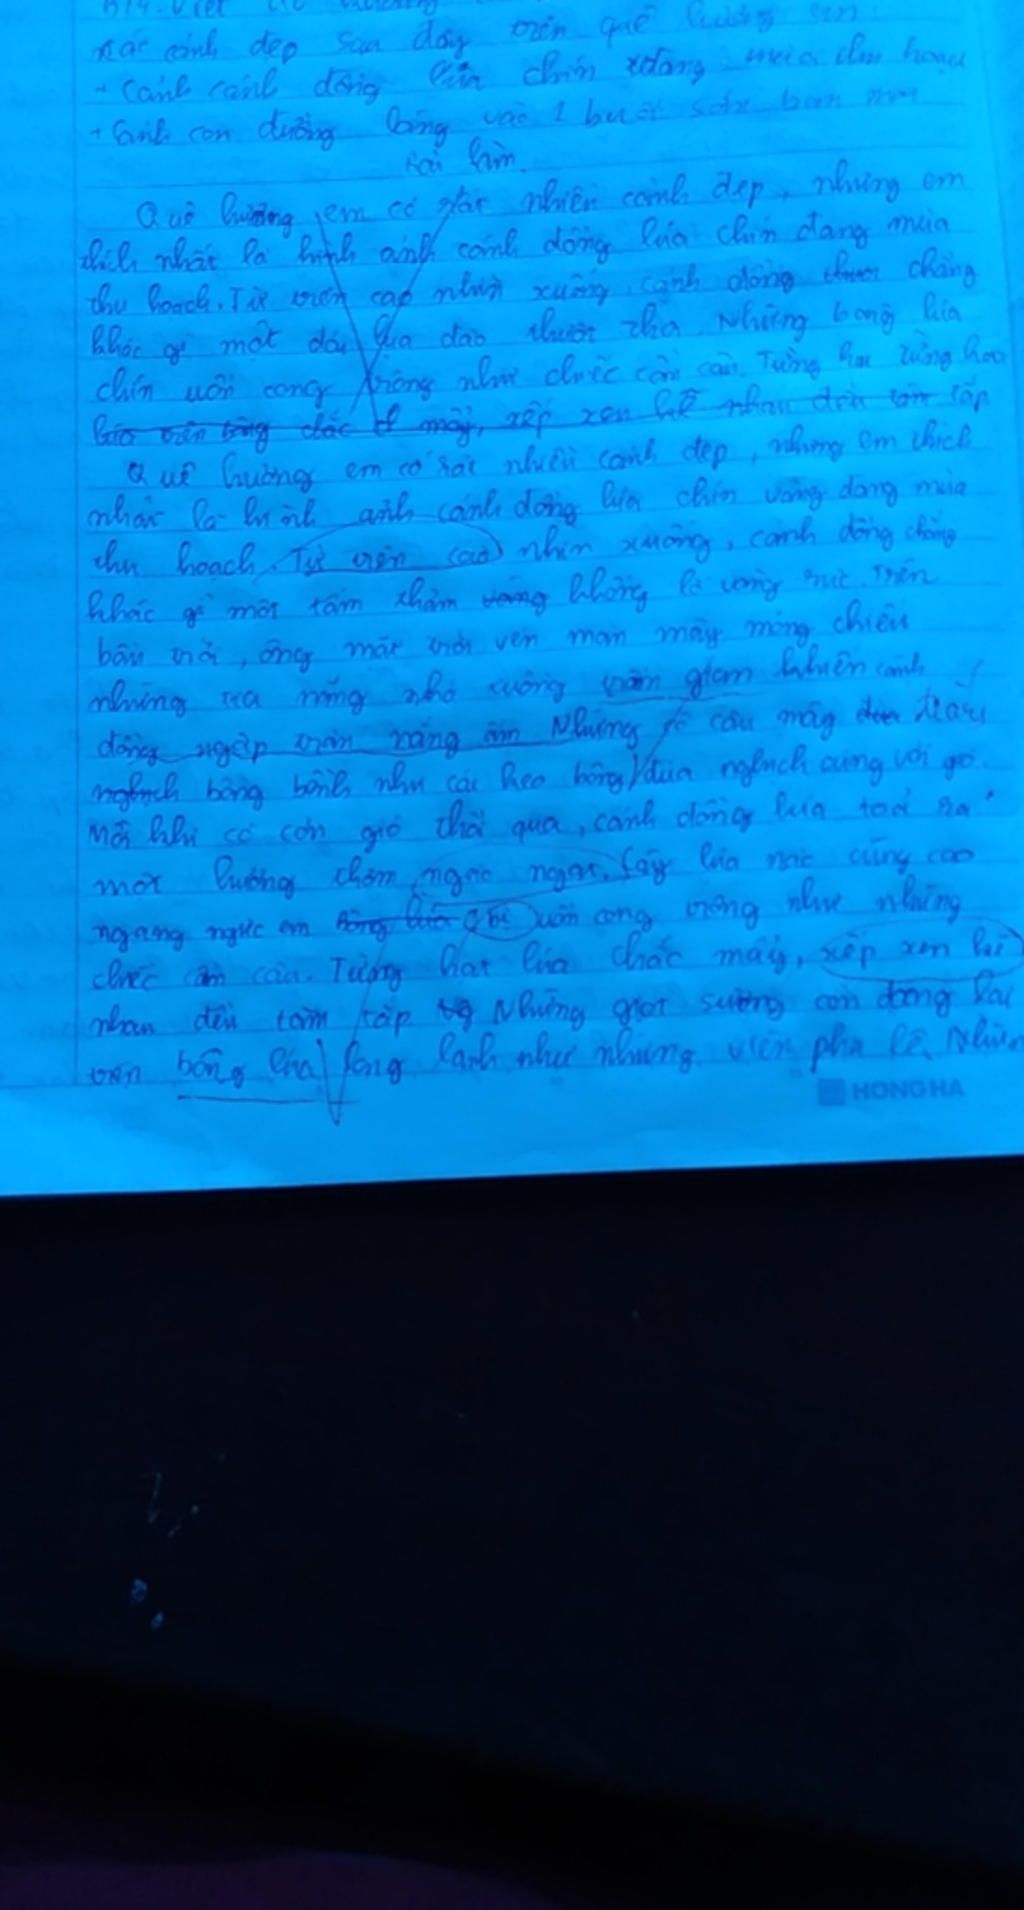 các cảnh đẹp sau đây trên quê hương em
+ Cảnh cánh đồng lúa chín đang mùa thu hoạch
+ Cảnh con đường làng vào 1 buổi sớm ban mai
Bài làm
Quê hương em có rất nhiên cảnh đẹp, nhưng em
thích nhất là hình ảnh cánh đồng lúa chín đang mùa
thu hoạch. Từ trên cao nhìn xuống, cánh đồng chẳng
khác gì một dải lụa đào thướt tha. Những bông lúa
chín uốn cong trông như chiếc cần câu. Từng hạt
lúa trên bông chắc mẩy, xếp xen kẽ nhau đều tăm tắp
Quê hương em có rất nhiều cảnh đẹp, nhưng em thích
nhất là hình ảnh cánh đồng lúa chín vàng đang mùa
thu hoạch. Từ trên cao nhìn xuống, cánh đồng chẳng
khác gì một tấm thảm vàng khổng lồ vàng rực. Trên
bầu trời, ông mặt trời vén màn mây mỏng chiếu
những tia nắng nhỏ xuống trần gian khiến cánh
đồng ngập tràn nắng ấm. Những cậu mây
nghịch bồng bềnh như cái kẹo bông đùa nghịch cùng với gió.
Mỗi khi có cơn gió thổi qua, cánh đồng lúa toả ra
mùi hương thơm ngào ngạt. Cây lúa nào cũng cao
ngang ngực em bông lúa uốn cong trông như những
chiếc cần câu. Từng hạt lúa chắc mẩy, xếp xen kẽ
nhau đều tăm tắp. Những giọt sương còn đọng lại
trên bông lúa long lanh như những viên pha lê.
HONG HA